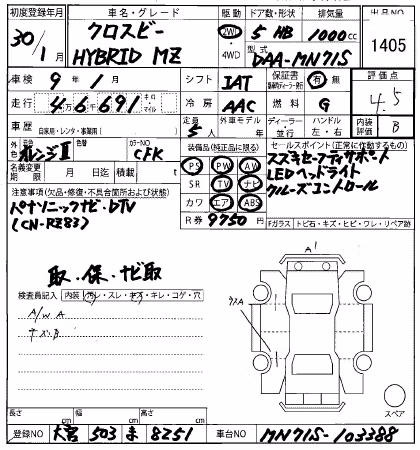 初度登録年月 車名・グレード 駆動 ドア数・形状 排気量 出品NO
30/1月 クロスビー HYBRID MZ 2WD ・ 4WD 5 HB 1000cc 1405
型式 DAA-MN71S
車検 9年1月 シフト IAT 保証書 有 無 評価点 4.5
走行 4万6千691 キロ・マイル 冷房 AAC 燃料 G
車歴 自家用・レンタ・事業用( ) 定員 5人 外車モデル 年 ディーラー・並行 ハンドル 左・右 内装評価 B
外色 元色 オレンジⅡ 色替 カラーNO CFK 装備品(純正品に限る) セールスポイント(正常に作動するもの)
名義変更期限 月 日迄 積載 t PS PW AW スズキセーフティサポート
注意事項(欠品・修復・不具合箇所および状態) SR TV ナビ LEDヘッドライト
パナソニックナビ・DTV カワ エア ABS クルーズコントロール
(CN-RZ83) R券 9750円 Fガラス トビ石・キズ・ヒビ・ワレ・リペア跡
取・保・ナビ取 A1
検査員記入 内装 汚レ・スレ・キズ・キレ・コゲ・穴
A/W A
キズB
スペア
長さ cm 幅 cm 高さ cm
登録NO 大宮 503 ま 8251 車台NO MN71S-103388